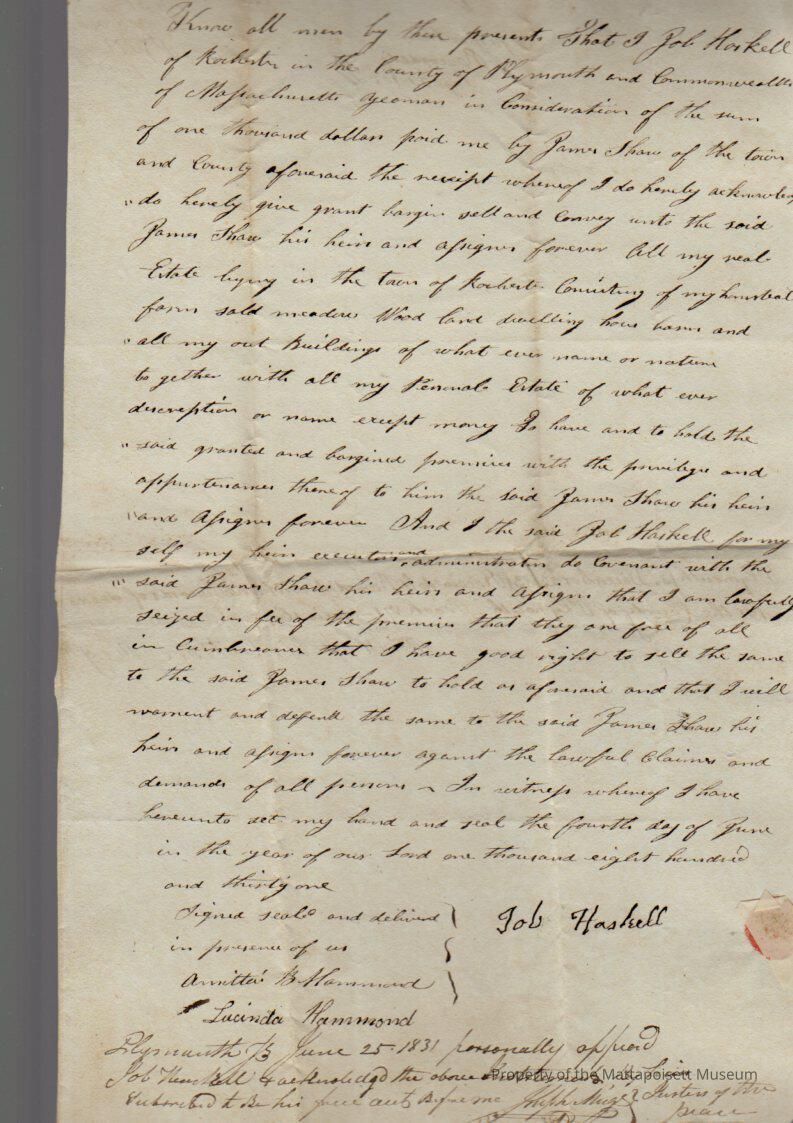 Know all men by these presents That I Job Haskell
of Rochester in the County of Plymouth and Commonwealth
of Massachusetts yeoman in Consideration of the sum
of one thousand dollars paid me by James Shaw of the town
and County aforesaid the receipt whereof I do hereby acknowledg
do hereby give grant bargin sell and Convey unto the said
James Shaw his heirs and assigns forever All my real
Estate lying in the town of Rochester Consisting of my homstead
farm salt meadow Wood land dwelling hous barns and
all my out Buildings of what ever name or nature
to gether with all my Personal Estate of what ever
description or name except money To have and to hold the
said granted and bargined premises with the privileges and
appurtenances thereof to him the said James Shaw his heirs
and Assigns forever And I the said Job Haskell for my
self my heirs executors and administrators do Covenant with the
said James Shaw his heirs and Assigns that I am lawfully
seized in fee of the premises that they are free of all
in Cumbrances that I have good right to sell the same
to the said James Shaw to hold as aforesaid and that I will
warrent and defend the same to the said James Shaw his
heirs and assigns forever against the lawful Claimes and
demands of all persons ~ In witness whereof I have
hereunto set my hand and seal the fourth day of June
in the year of our Lord one thousand eight hundred
and thirty one
Signed seald and deliverd
in presence of us
Job Haskell
B Hammond
Lucinda Hammond
Plymouth Ss June 25 1831 personally appeard
Job Haskell & acknoledgd the above
Subscribed to Be his free act Before me
Justice of the
peace
Property of the Mattapoisett Museum